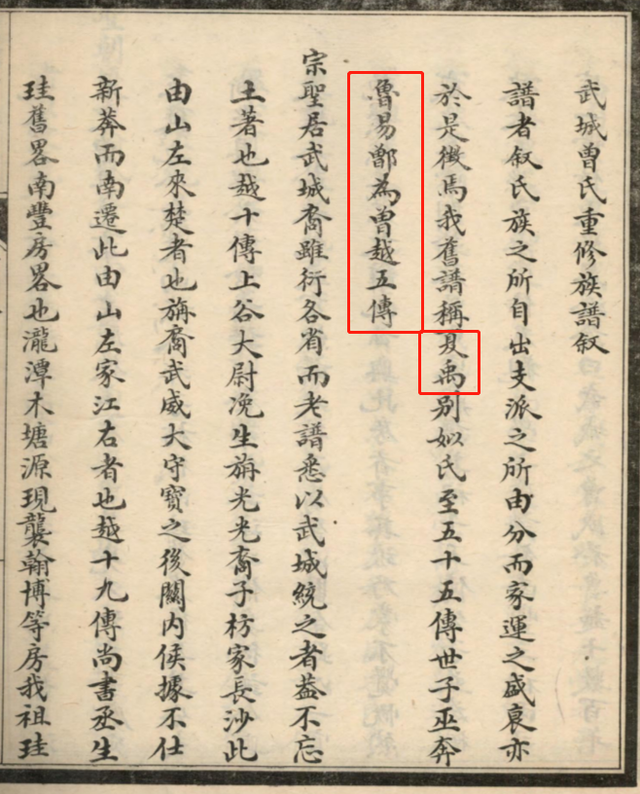 武城曾氏重修族譜叙
譜者叙氏族之所自出支派之所由分而家運之盛衰亦
於是徵焉我舊譜稱夏禹别姒氏至五十五傳世子巫奔
魯易鄫為曾越五傳
宗聖居武城裔雖衍各省而老譜悉以武城統之者葢不忘
土著也越十傳上谷大尉浼生旃光光裔子枋家長沙此
由山左來楚者也旃裔武威大守寶之後關内侯據不仕
新莽而南遷此由山左家江右者也越十九傳尚書丞生
珪舊畧南豐房畧也瀧潭木塘源現襲翰博等房我祖珪